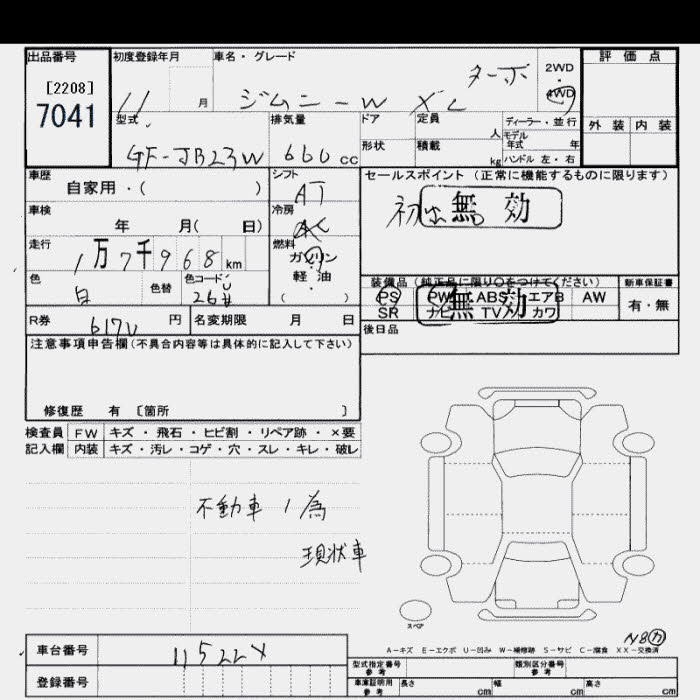 出品番号 初度登録年月 車名・グレード 評価点
[2208]
7041
11 月 ジムニーW XL ターボ 2WD・4WD
型式 排気量 ドア 定員 人 ディーラー・並行 外装 内装
モデル年式 年
GF-JB23W 660 cc 形状 積載 kg ハンドル 左・右
車歴 シフト セールスポイント(正常に機能するものに限ります)
自家用・( ) AT
車検 冷房 無効
年 月( 日) AC
走行 燃料
1万7千968 km ガソリン・軽油
( )
色 色替 色コード 装備品(純正品に限り○をつけてください) 新車保証書
白 26U PS PW ABS エアB AW 有・無
無効
SR ナビ TV カワ
R券 円 名変期限 月 日 後日品
注意事項申告欄(不具合内容等は具体的に記入して下さい)
修復歴 有 〔箇所 〕
検査員 FW キズ・飛石・ヒビ割・リペア跡・×要
記入欄 内装 キズ・汚レ・コゲ・穴・スレ・キレ・破レ
不動車ノ為
現状車
スペア
A-キズ E-エクボ U-凹み W-補修跡 S-サビ C-腐食 XX-交換済
車台番号
登録番号
型式指定番号 参考 類別区分番号 参考
車庫証明用 参考 長さ cm 幅 cm 高さ cm